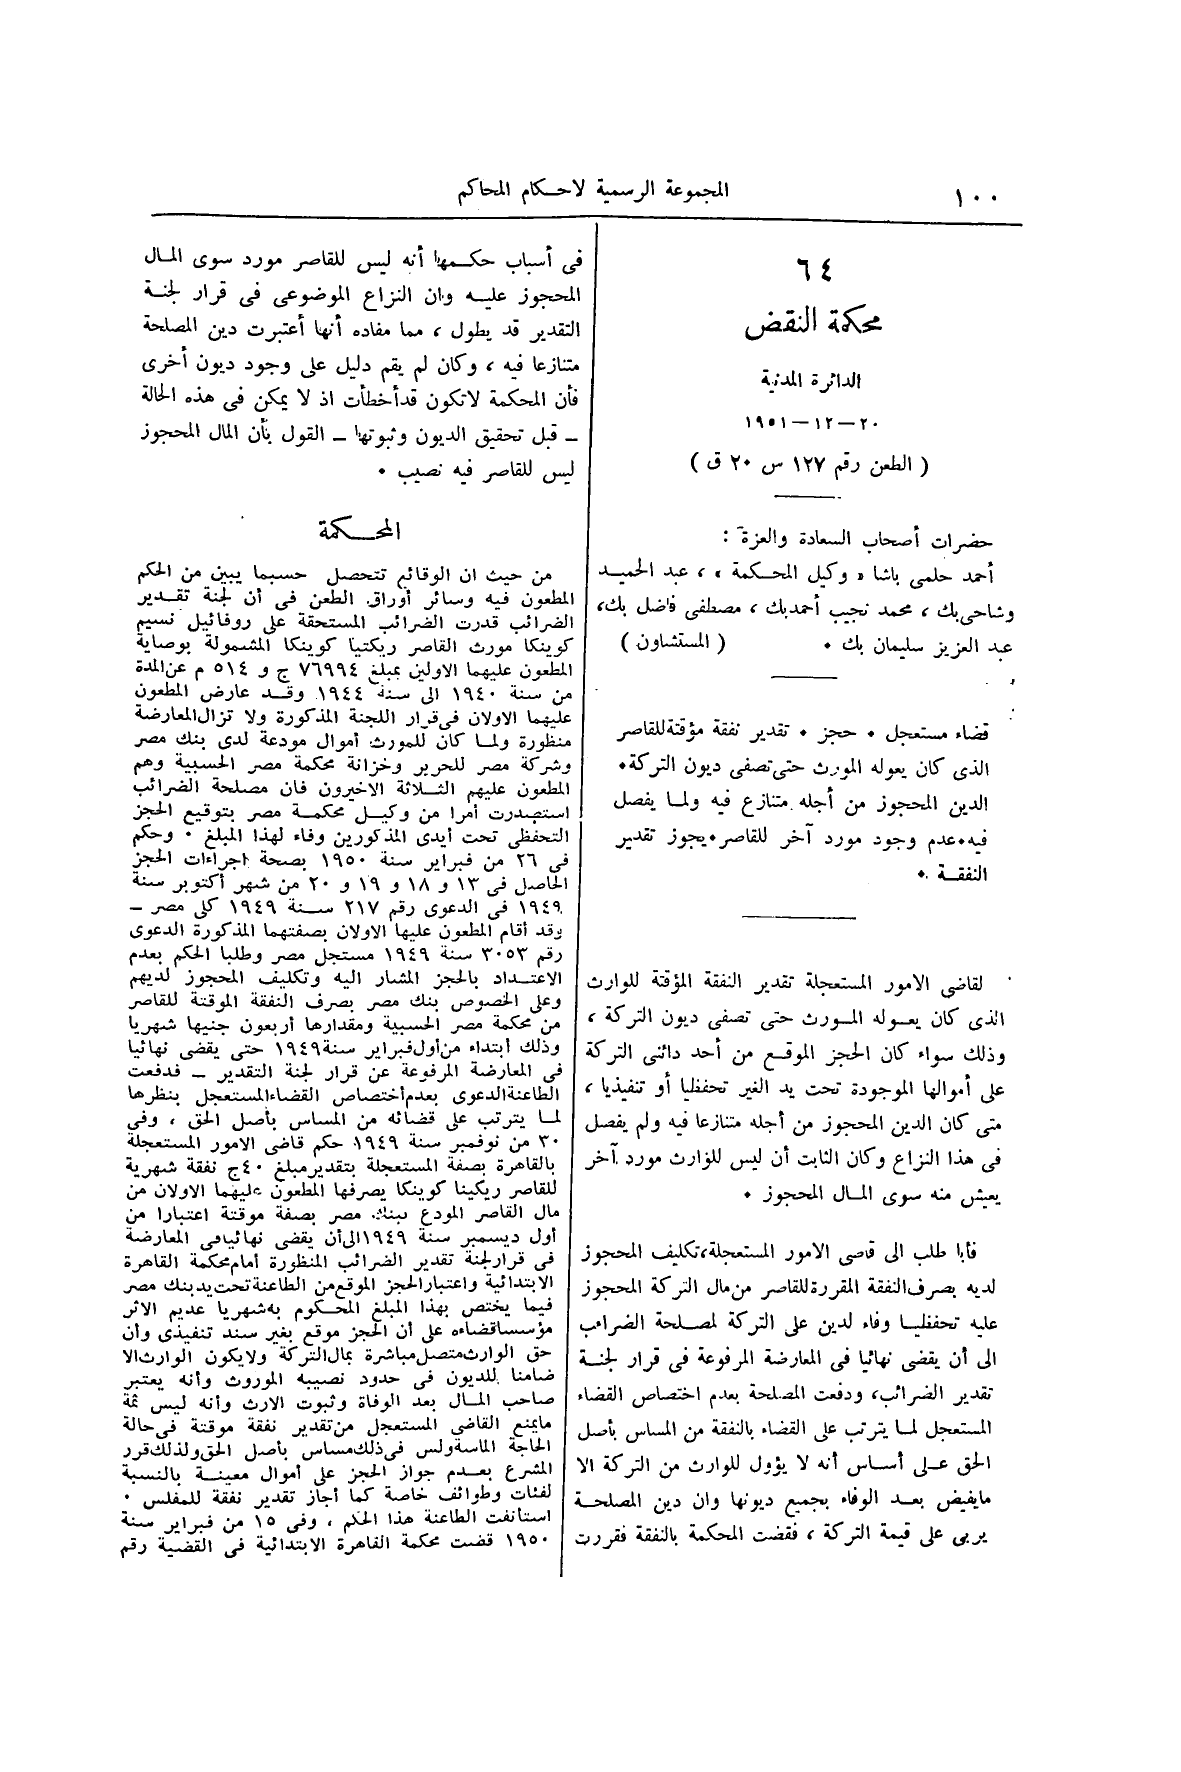 ١٠٠
المجموعة الرسمية لاحكام المحاكم
٦٤
محكمة النقض
الدائرة المدنية
٢٠ — ١٢ — ١٩٥١
( الطعن رقم ١٢٧ س ٢٠ ق )
حضرات أصحاب السعادة والعزة :
أحمد حلمى باشا « وكيل المحكمة » ، عبد الحميد
وشاحى بك ، محمد نجيب أحمد بك ، مصطفى فاضل بك ،
عبد العزيز سليمان بك . ( المستشاون )
قضاء مستعجل . حجز . تقدير نفقة مؤقتة للقاصر
الذى كان يعوله المورث حتى تصفى ديون التركة .
الدين المحجوز من أجله متنازع فيه ولما يفصل
فيه . عدم وجود مورد آخر للقاصر . يجوز تقدير
النفقة .
لقاضى الامور المستعجلة تقدير النفقة المؤقتة للوارث
الذى كان يعوله المورث حتى تصفى ديون التركة ،
وذلك سواء كان الحجز الموقع من أحد دائنى التركة
على أموالها الموجودة تحت يد الغير تحفظيا أو تنفيذيا ،
متى كان الدين المحجوز من أجله متنازعا فيه ولم يفصل
فى هذا النزاع وكان الثابت أن ليس للوارث مورد آخر
يعيش منه سوى المال المحجوز .
فاذا طلب الى قاضى الامور المستعجلة ، تكليف المحجوز
لديه بصرف النفقة المقررة للقاصر من مال التركة المحجوز
عليه تحفظيا وفاء لدين على التركة لمصلحة الضرائب
الى أن يقضى نهائيا فى المعارضة المرفوعة فى قرار لجنة
تقدير الضرائب ، ودفعت المصلحة بعدم اختصاص القضاء
المستعجل لما يترتب على القضاء بالنفقة من المساس بأصل
الحق على أساس أنه لا يؤول للوارث من التركة الا
مايفيض بعد الوفاء بجميع ديونها وان دين المصلحة
يربى على قيمة التركة ، فقضت المحكمة بالنفقة فقررت
فى أسباب حكمها أنه ليس للقاصر مورد سوى المال
المحجوز عليه وان النزاع الموضوعى فى قرار لجنة
التقدير قد يطول ، مما مفاده أنها أعتبرت دين المصلحة
متنازعا فيه ، وكان لم يقم دليل على وجود ديون أخرى
فأن المحكمة لاتكون قد أخطأت اذ لا يمكن فى هذه الحالة
— قبل تحقيق الديون وثبوتها — القول بأن المال المحجوز
ليس للقاصر فيه نصيب .
المحكمة
من حيث ان الوقائع تتحصل حسبما يبين من الحكم
المطعون فيه وسائر أوراق الطعن فى أن لجنة تقدير
الضرائب قدرت الضرائب المستحقة على روفائيل نسيم
كوينكا مورث القاصر ريكتيا كوينكا المشمولة بوصاية
المطعون عليهما الاولين بمبلغ ٧٦٩٩٤ ج و ٥١٤ م عن المدة
من سنة ١٩٤٠ الى سنة ١٩٤٤ وقد عارض المطعون
عليهما الاولان فى قرار اللجنة المذكورة ولا تزال المعارضة
منظورة ولما كان للمورث أموال مودعة لدى بنك مصر
وشركة مصر للحرير وخزانة محكمة مصر الحسبية وهم
المطعون عليهم الثلاثة الاخيرون فان مصلحة الضرائب
استصدرت أمرا من وكيل محكمة مصر بتوقيع الحجز
التحفظى تحت أيدى المذكورين وفاء لهذا المبلغ . وحكم
فى ٢٦ من فبراير سنة ١٩٥٠ بصحة اجراءات الحجز
الحاصل فى ١٣ و ١٨ و ١٩ و ٢٠ من شهر أكتوبر سنة
١٩٤٩ فى الدعوى رقم ٢١٧ سنة ١٩٤٩ كلى مصر —
وقد أقام المطعون عليها الاولان بصفتهما المذكورة الدعوى
رقم ٣٠٥٣ سنة ١٩٤٩ مستجل مصر وطلبا الحكم بعدم
الاعتداد بالحجز المشار اليه وتكليف المحجوز لديهم
وعلى الخصوص بنك مصر بصرف النفقة الموقتة للقاصر
من محكمة مصر الحسبية ومقدارها أربعون جنيها شهريا
وذلك أبتداء من أول فبراير سنة ١٩٤٩ حتى يقضى نهائيا
فى المعارضة المرفوعة عن قرار لجنة التقدير — فدفعت
الطاعنة الدعوى بعدم أختصاص القضاء المستعجل بنظرها
لما يترتب على قضائه من المساس بأصل الحق ، وفى
٣٠ من نوفمبر سنة ١٩٤٩ حكم قاضى الامور المستعجلة
بالقاهرة بصفة المستعجلة بتقدير مبلغ ٤٠ ج نفقة شهرية
للقاصر ريكينا كوينكا يصرفها المطعون عليهما الاولان من
مال القاصر المودع ببنك مصر بصفة موقتة اعتبارا من
أول ديسمبر سنة ١٩٤٩ الى أن يقضى نهائيا فى المعارضة
فى قرار لجنة تقدير الضرائب المنظورة أمام محكمة القاهرة
الابتدائية واعتبار الحجز الموقع من الطاعنة تحت يد بنك مصر
فيما يختص بهذا المبلغ المحكوم به شهريا عديم الاثر
مؤسسا قضاءه على أن الحجز موقع بغير سند تنفيذى وأن
حق الوارث متصل مباشرة بمال التركة ولا يكون الوارث الا
ضامنا للديون فى حدود نصيبه الموروث وأنه يعتبر
صاحب المال بعد الوفاة وثبوت الارث وأنه ليس ثمة
مايمنع القاضى المستعجل من تقدير نفقة موقتة فى حالة
الحاجة الماسة وليس فى ذلك مساس بأصل الحق ولذلك قرر
المشرع بعدم جواز الحجز على أموال معينة بالنسبة
لفئات وطوائف خاصة كما أجاز تقدير نفقة للمفلس .
استانفت الطاعنة هذا الحكم ، وفى ١٥ من فبراير سنة
١٩٥٠ قضت محكمة القاهرة الابتدائية فى القضية رقم